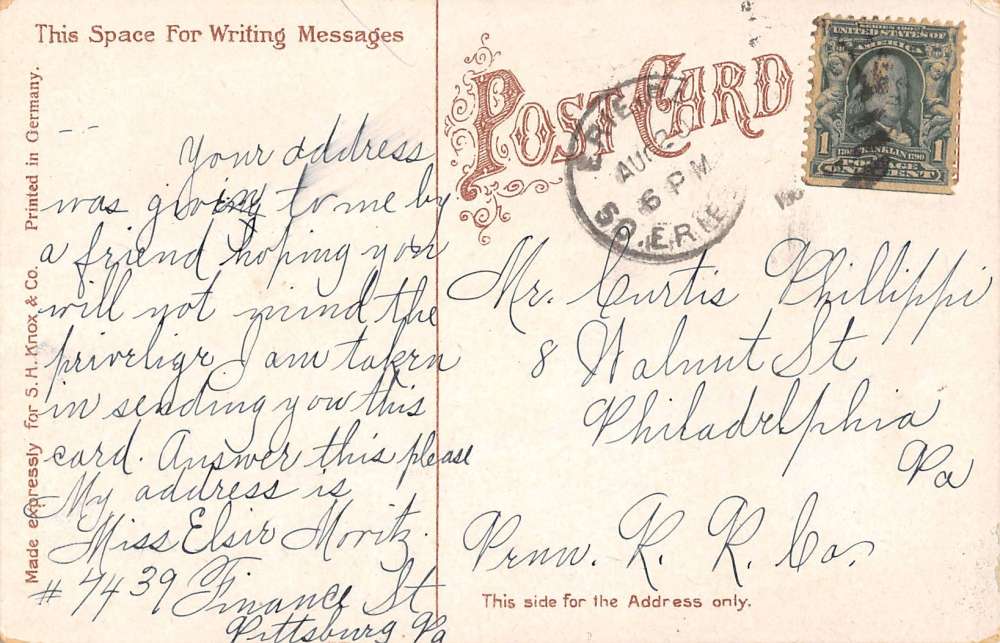 This Space For Writing Messages
Your address
was giving to me by
a friend hoping you
will not mind the
privelige I am taken
in sending you this
card. Answer this please
My address is
Miss Elsie Moritz.
# 7439 Finance St
Pittsburg. Pa
Made expressly for S. H. Knox & Co. Printed in Germany.
POST CARD
ERIE
AUG 2
6 PM
SO. ERIE
SERIES 1902
UNITED STATES OF
AMERICA
1706 FRANKLIN 1790
1 POSTAGE 1
ONE CENT
Mr. Curtis Phillippi
8 Walnut St
Philadelphia
Pa
Penn. R. R. Co.
This side for the Address only.